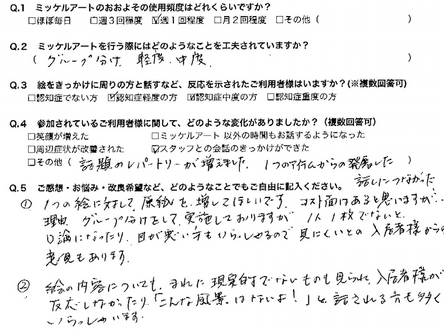 Q.1 ミッケルアートのおおよその使用頻度はどれくらいですか?
□ほぼ毎日 □週3回程度 ☑週1回程度 □月2回程度 □その他 (          )
Q.2 ミッケルアートを行う際にはどのようなことを工夫されていますか?
( グループ分け 軽度、中度 )
Q.3 絵をきっかけに周りの方と話すなど、反応を示されたご利用者様はいますか?(※複数回答可)
□認知症でない方 ☑認知症軽度の方 ☑認知症中度の方 □認知症重度の方
Q.4 参加されているご利用者様に関して、どのような変化がありましたか? (複数回答可)
□笑顔が増えた □ミッケルアート 以外の時間もお話するようになった
□周辺症状が改善された ☑スタッフとの会話のきっかけができた
□その他 ( 話題のレパートリーが増えました。1つの行ムからの発展した )
話しにつながった
Q.5 ご感想・お悩み・改良希望など、どのようなことでもご自由に記入ください。
① 1つの絵に対して、原紙も、増してほしいです。コスト面はあると思いますが、
理由、グループ分けをして、実施しておりますが、1人1枚でないと、
口論になったり、目が悪い方もいらっしゃるので見にくいとの入居者様からの
意見もあります。
② 絵の内容についても、まれに現実的でないものも見られ、入居者様が
反応しなかったり「こんな風景はないよ!」と、話される方も多く
いらっしゃいます。